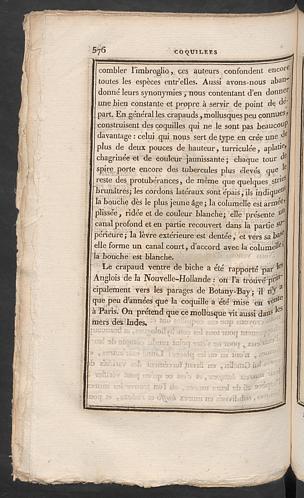 576 COQUILLES
combler l'imbroglio, ces auteurs confondent encore
toutes les espèces entr'elles. Aussi avons-nous aban-
donné leurs synonymies, nous contentant d'en donner
une bien constante et propre à servir de point de dé-
part. En général les crapauds, mollusques peu connus,
construisent des coquilles qui ne le sont pas beaucoup
davantage : celui qui nous sert de type en crée une de
plus de deux pouces de hauteur, turriculée, aplatie,
chagrinée et de couleur jaunissante; chaque tour de
spire porte encore des tubercules plus élevés que le
reste des protubérances, de même que quelques stries
brunâtres; les cordons latéraux sont épais, ils indiquent
la bouche dès le plus jeune âge; la columelle est armée,
plissée, ridée et de couleur blanche; elle présente un
canal profond et en partie recouvert dans la partie su-
périeure; la lèvre extérieure est dentée, et vers sa base
elle forme un canal court, d'accord avec la columelle;
la bouche est blanche.
Le crapaud ventre de biche a été rapporté par les
Anglois de la Nouvelle-Hollande : on l'a trouvé prin-
cipalement vers les parages de Botany-Bay; il n'y a
que peu d'années que la coquille a été mise en vente
à Paris. On prétend que ce mollusque vit aussi dans les
mers des Indes.